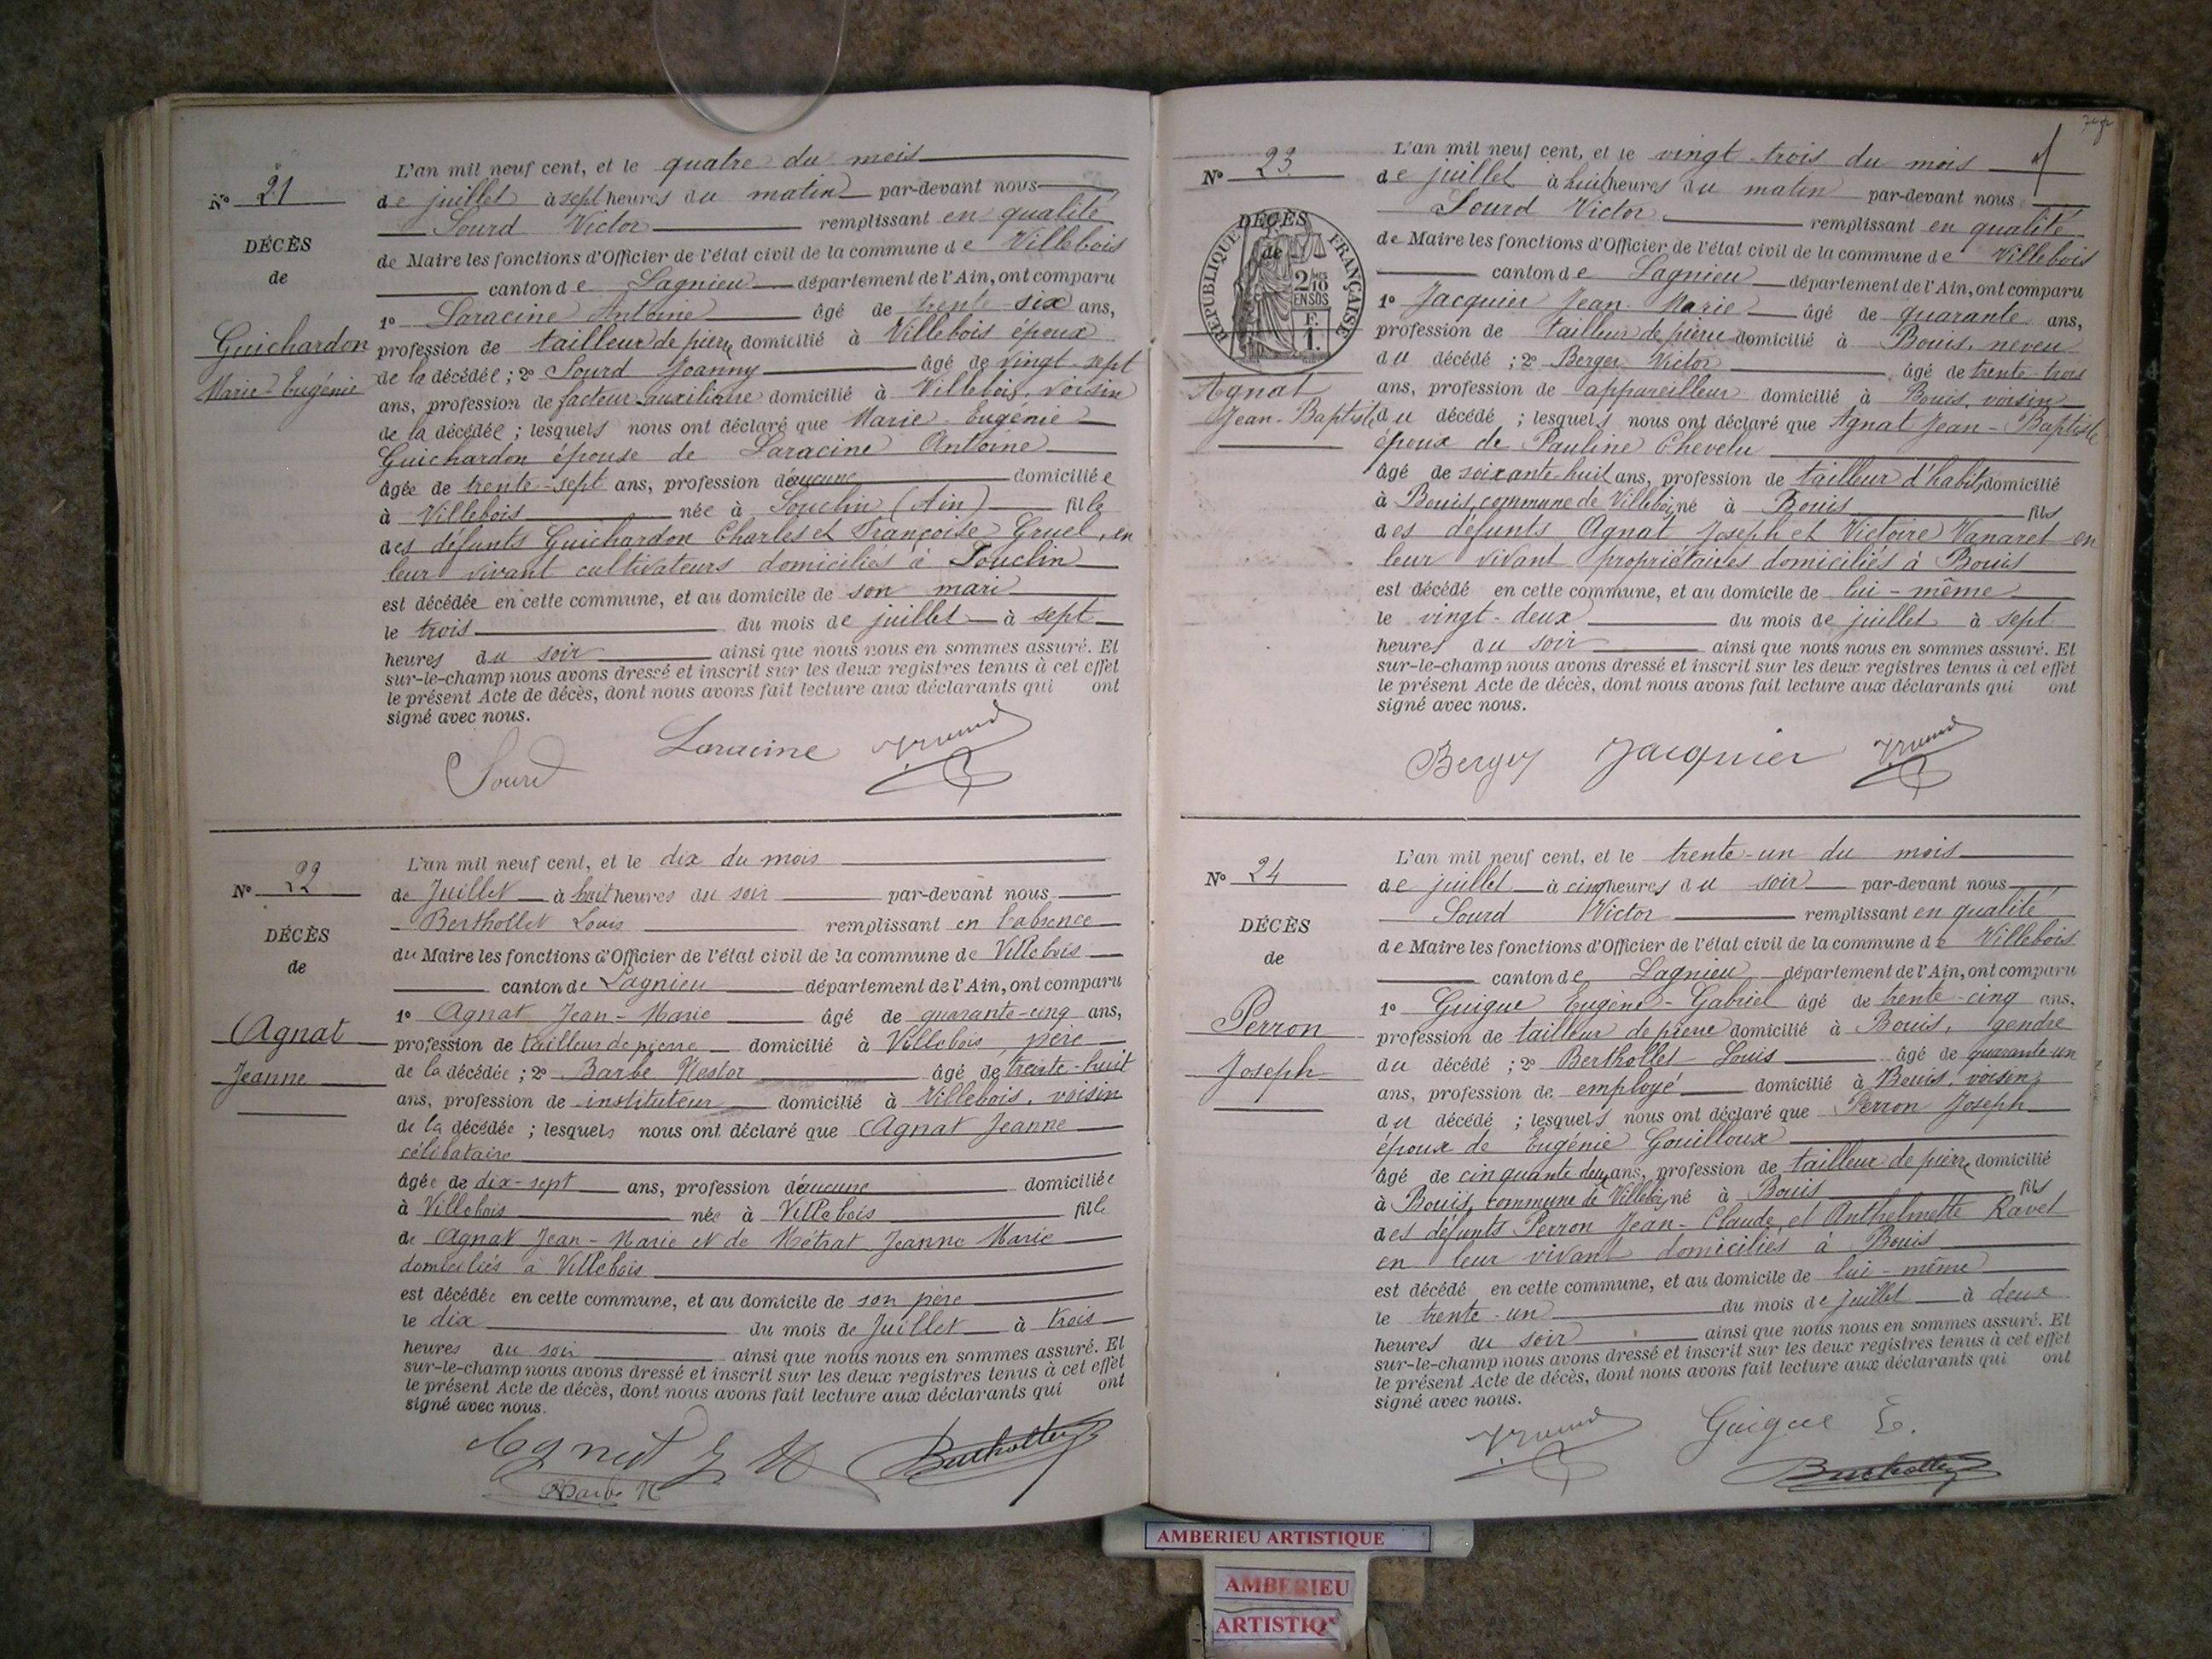 N° 21
DÉCÈS
de
Guichardon
Marie-Eugénie
L'an mil neuf cent, et le quatre du mois
de juillet à sept heures du matin par-devant nous
Sourd Victor remplissant en qualité
de Maire les fonctions d'Officier de l'état civil de la commune de Villebois
canton de Lagnieu département de l'Ain, ont comparu
1° Laracine Antoine âgé de trente-six ans,
profession de tailleur de pierre domicilié à Villebois époux
de la décédée ; 2° Sourd Joanny âgé de vingt-sept
ans, profession de facteur auxiliaire domicilié à Villebois, voisin
de la décédée ; lesquels nous ont déclaré que Marie-Eugénie
Guichardon épouse de Laracine Antoine
âgée de trente-sept ans, profession d'aucune domiciliée
à Villebois née à Souclin (Ain) fille
des défunts Guichardon Charles et Françoise Gruel, en
leur vivant cultivateurs domiciliés à Souclin
est décédée en cette commune, et au domicile de son mari
le trois du mois de juillet à sept
heures du soir ainsi que nous nous en sommes assuré. Et
sur-le-champ nous avons dressé et inscrit sur les deux registres tenus à cet effet
le présent Acte de décès, dont nous avons fait lecture aux déclarants qui ont
signé avec nous.
Sourd Laracine
N° 22
DÉCÈS
de
Agnat
Jeanne
L'an mil neuf cent, et le dix du mois
de Juillet à huit heures du soir par-devant nous
Berthollet Louis remplissant en l'absence
du Maire les fonctions d'Officier de l'état civil de la commune de Villebois
canton de Lagnieu département de l'Ain, ont comparu
1° Agnat Jean-Marie âgé de quarante-cinq ans,
profession de tailleur de pierre domicilié à Villebois père
de la décédée ; 2° Barbe Nestor âgé de trente-huit
ans, profession de instituteur domicilié à Villebois, voisin
de la décédée ; lesquels nous ont déclaré que Agnat Jeanne
célibataire
âgée de dix-sept ans, profession d'aucune domiciliée
à Villebois née à Villebois fille
de Agnat Jean-Marie et de Métrat Jeanne Marie
domiciliés à Villebois
est décédée en cette commune, et au domicile de son père
le dix du mois de Juillet à trois
heures du soir ainsi que nous nous en sommes assuré. Et
sur-le-champ nous avons dressé et inscrit sur les deux registres tenus à cet effet
le présent Acte de décès, dont nous avons fait lecture aux déclarants qui ont
signé avec nous.
Agnat J M Berthollet
Barbe N
N° 23
DÉCÈS
de
RÉPUBLIQUE FRANÇAISE
2/10 EN SUS
F. 1.
Agnat
Jean-Baptiste
L'an mil neuf cent, et le vingt-trois du mois
de juillet à huit heures du matin par-devant nous
Sourd Victor remplissant en qualité
de Maire les fonctions d'Officier de l'état civil de la commune de Villebois
canton de Lagnieu département de l'Ain, ont comparu
1° Jacquier Jean-Marie âgé de quarante ans,
profession de tailleur de pierre domicilié à Bouis, neveu
du décédé ; 2° Berger Victor âgé de trente-trois
ans, profession de appareilleur domicilié à Bouis, voisin
du décédé ; lesquels nous ont déclaré que Agnat Jean-Baptiste
époux de Pauline Chevelu
âgé de soixante huit ans, profession de tailleur d'habits domicilié
à Bouis, commune de Villebois né à Bouis fils
des défunts Agnat Joseph et Victoire Vanaret en
leur vivant propriétaires domiciliés à Bouis
est décédé en cette commune, et au domicile de lui-même
le vingt-deux du mois de juillet à sept
heures du soir ainsi que nous nous en sommes assuré. Et
sur-le-champ nous avons dressé et inscrit sur les deux registres tenus à cet effet
le présent Acte de décès, dont nous avons fait lecture aux déclarants qui ont
signé avec nous.
Berger Jacquier
N° 24
DÉCÈS
de
Perron
Joseph
L'an mil neuf cent, et le trente-un du mois
de juillet à cinq heures du soir par-devant nous
Sourd Victor remplissant en qualité
de Maire les fonctions d'Officier de l'état civil de la commune de Villebois
canton de Lagnieu département de l'Ain, ont comparu
1° Guigue Eugène-Gabriel âgé de trente-cinq ans,
profession de tailleur de pierre domicilié à Bouis, gendre
du décédé ; 2° Berthollet Louis âgé de quarante-un
ans, profession de employé domicilié à Bouis, voisin
du décédé ; lesquels nous ont déclaré que Perron Joseph
époux de Eugénie Gouilloux
âgé de cinquante deux ans, profession de tailleur de pierre domicilié
à Bouis, commune de Villebois né à Bouis fils
des défunts Perron Jean-Claude et Anthelmette Ravet
en leur vivant domiciliés à Bouis
est décédé en cette commune, et au domicile de lui-même
le trente-un du mois de juillet à deux
heures du soir ainsi que nous nous en sommes assuré. Et
sur-le-champ nous avons dressé et inscrit sur les deux registres tenus à cet effet
le présent Acte de décès, dont nous avons fait lecture aux déclarants qui ont
signé avec nous.
Guigue E.
Berthollet
AMBERIEU ARTISTIQUE
AMBERIEU
ARTISTIQ